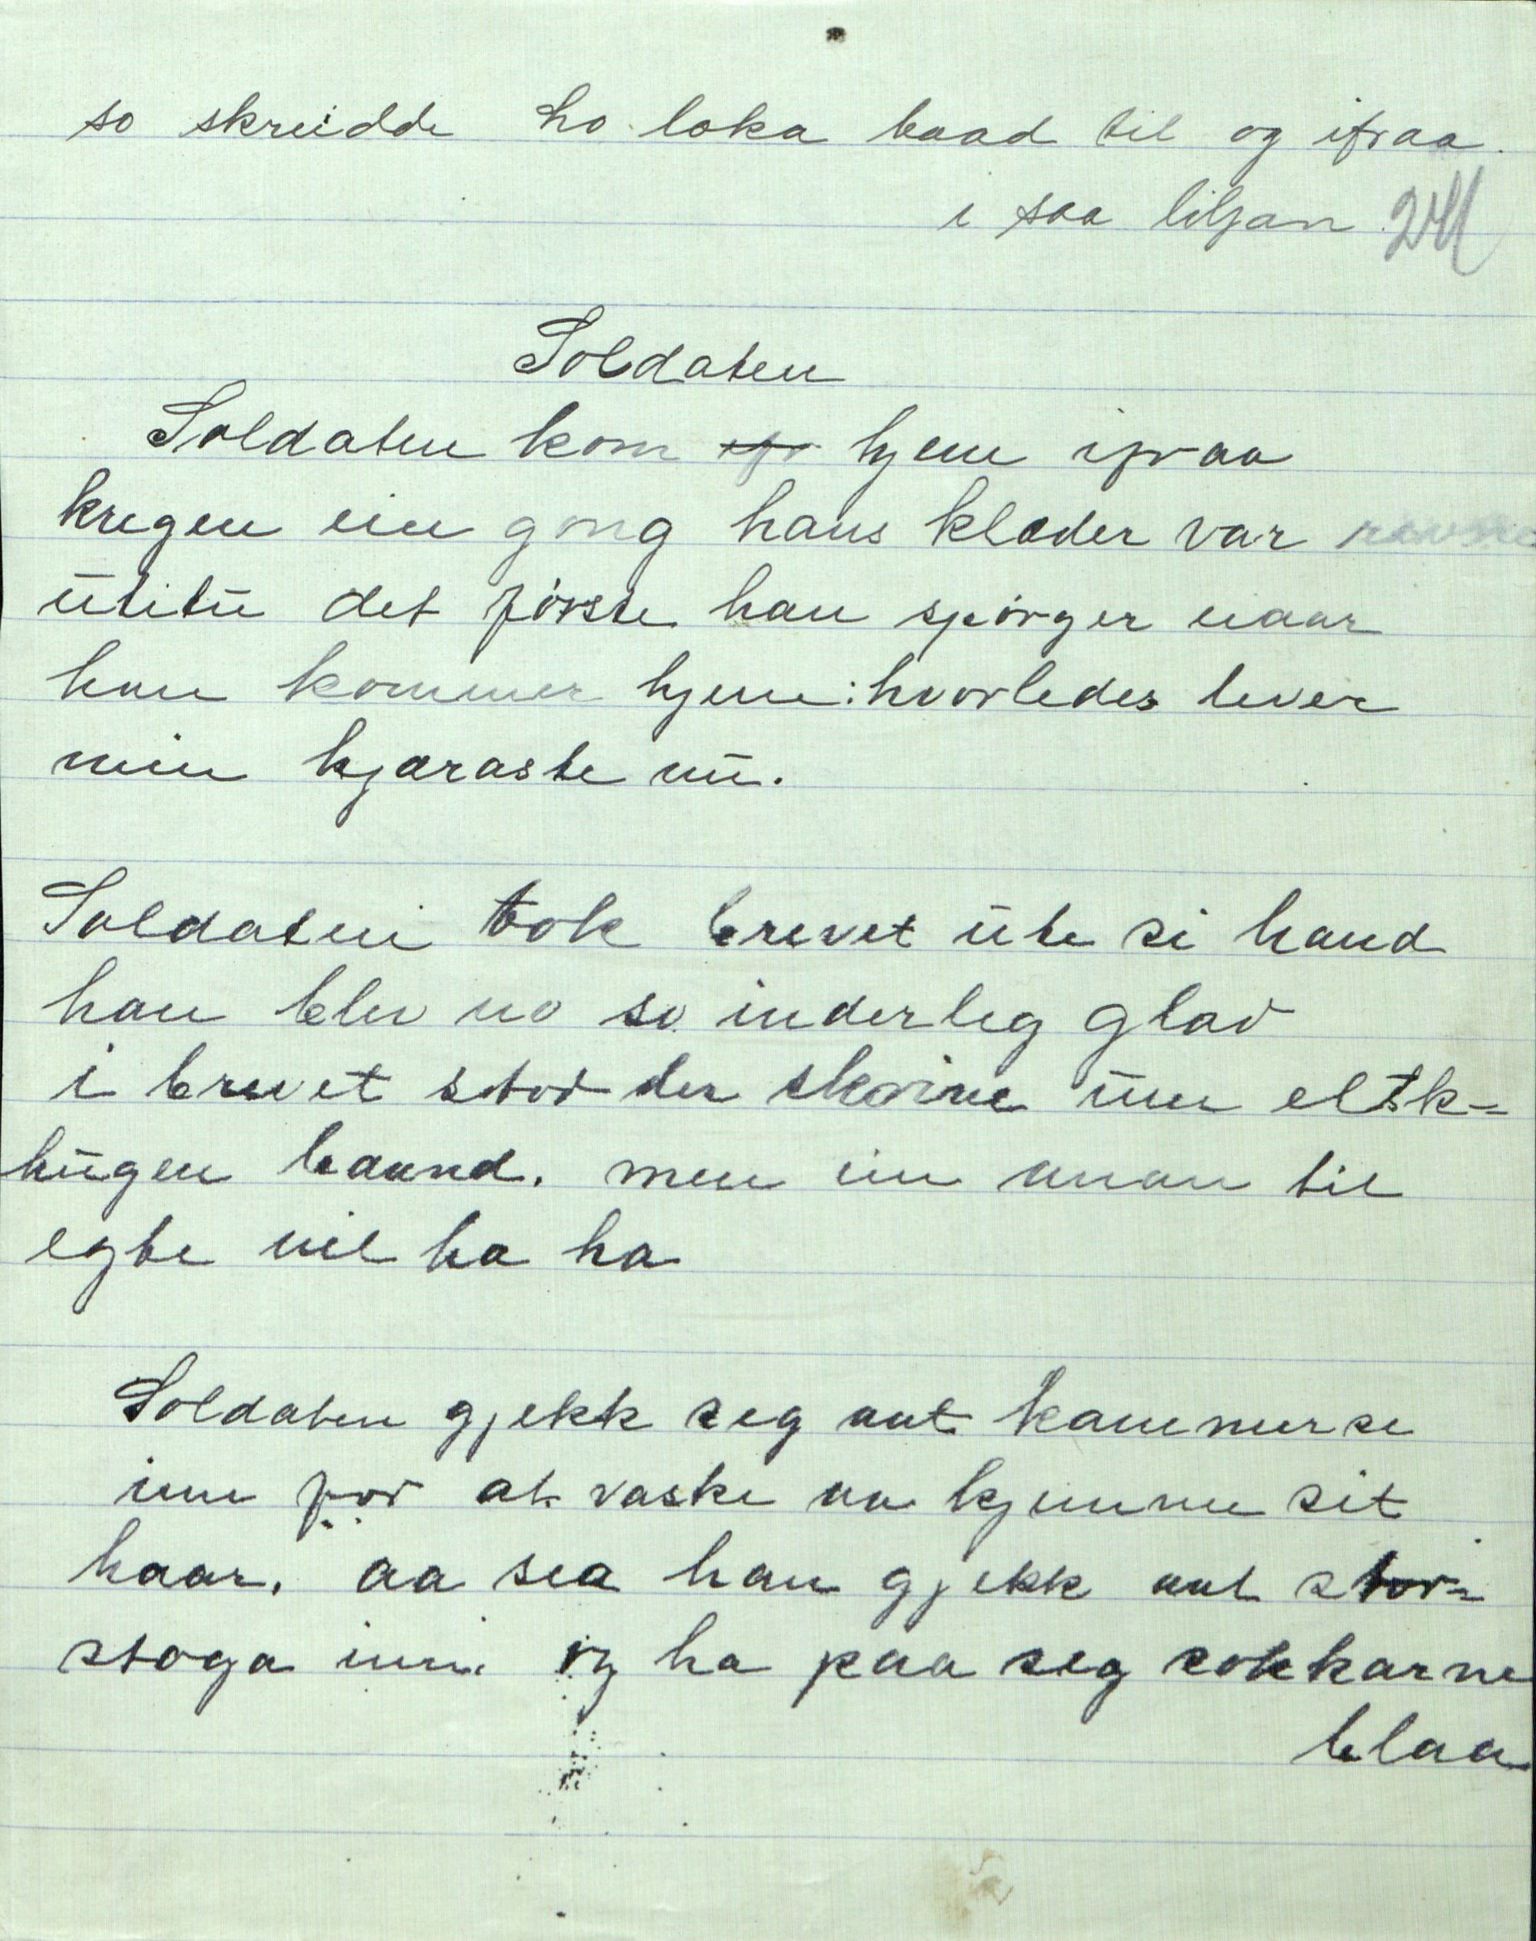 so skreidde ho loka baad til og ifraa.
i saa liljan 24
Soldaten
Soldaten kom hjem ifraa
kregen ein gong hans klæder var
ütitü det første han spørger naar
han kommer hjem: hvorledes lever
min kjæraste nü.
Soldaten tok brevet üte si hand
han blev no so inderleg glad
i brevet stod der skrive üm eltsk-
hügen baand. men ein anan til
egte vil ha ha
Soldaten gjekk seg aat kammerse
inn for at vaske aa kjemme sit
haar. aa sea han gjekk aat stor-
stoga inn. og ha paa seg sokkarne
blaa